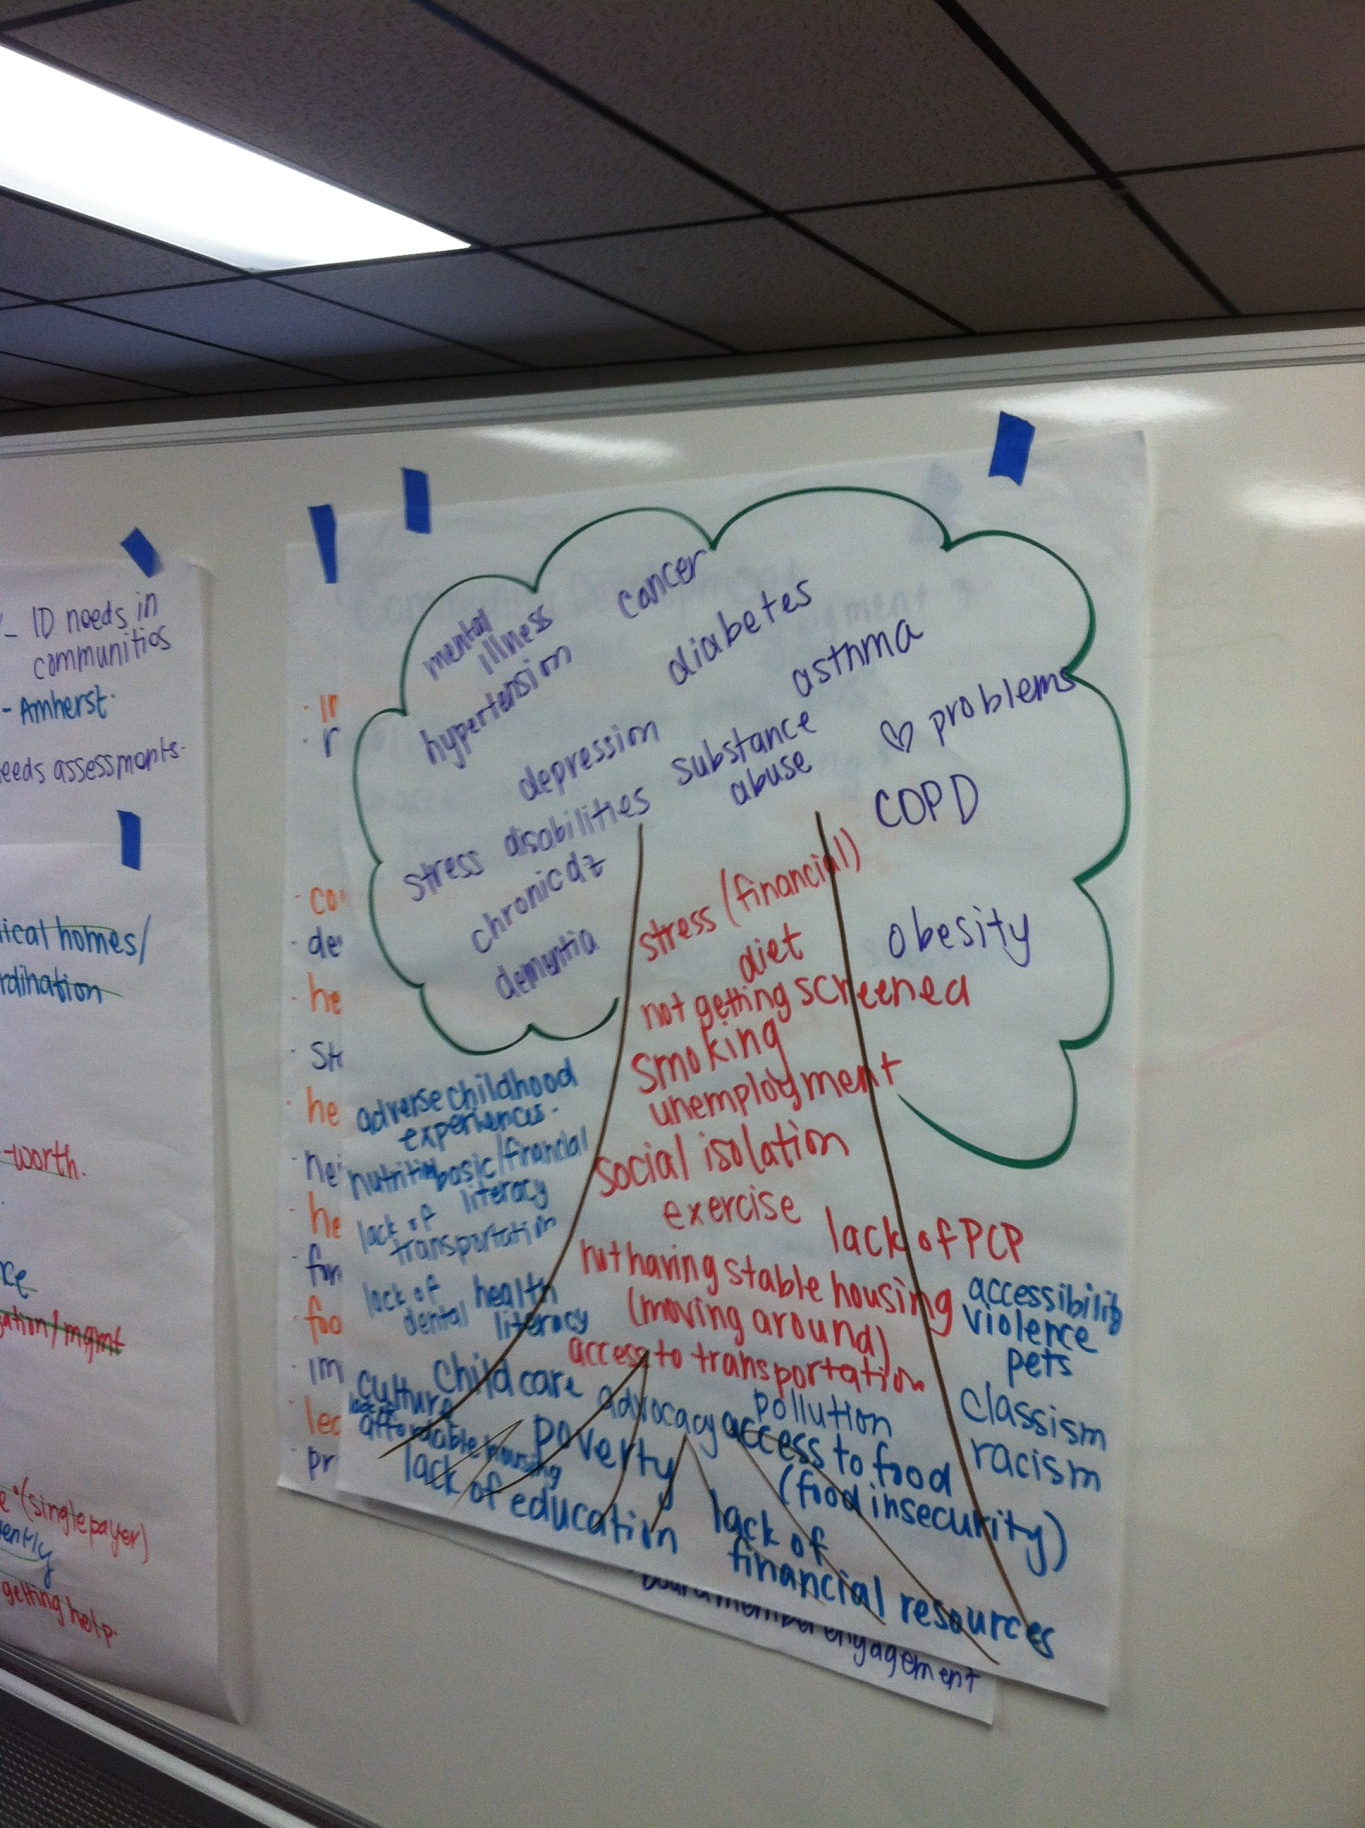 - ID needs in
communities
- Amherst.
eeds assessments.
ical homes/
rdination
-worth.
ce
ation/mgmt
(single payer)
ently
getting help
mental
illness
cancer
hypertension
diabetes
asthma
depression
substance
abuse
♡ problems
stress
disabilities
COPD
chronic dz
demntia
obesity
stress (financial)
diet
not getting screened
smoking
unemployment
social isolation
exercise
lack of PCP
not having stable housing
(moving around)
access to transportation
adverse childhood
experiences.
nutrition/basic/financial
literacy
lack of
transportation
lack of
dental
health
literacy
culture
child care
affordable housing
lack of education
poverty
advocacy
pollution
access to food
(food insecurity)
lack of
financial resources
accessibility
violence
pets
classism
racism
co
de
he
St
he
he
foo
im
pr
board member engagement